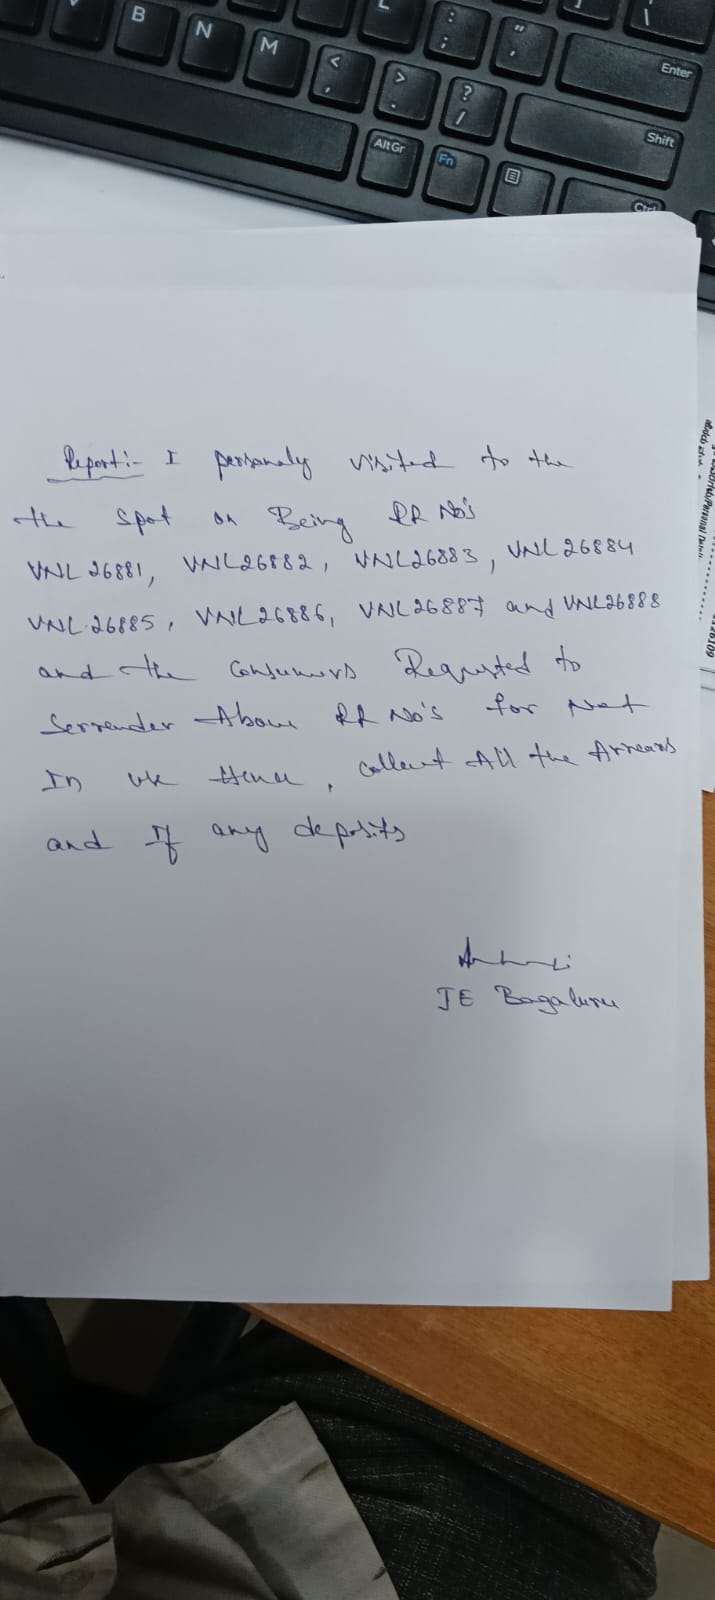 B
N
M
L
:
;
"
,
<
,
>
.
?
/
Enter
Shift
AltGr
Fn
Ctrl
\
Report:- I personaly visited to the
the Spot on Being RR No's
VNL 26881, VNL26882, VNL26883, VNL 26884
VNL 26885, VNL26886, VNL26887 and VNL26888
and the Consumers Requsted to
Serrender Above RR No's for Not
In use Hence, collect All the Arrears
and If any deposits
JE Bagaluru
126109